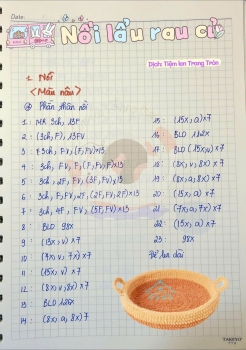 Date:
Nồi lẩu rau củ
Dịch: Tiệm len Trang Trân
1. Nồi
<Màu nâu>
Phần thân nồi
1: MR 3ch, 13F
2: (3ch, F), 13FV
3: 3ch, FV, (F, FV)x13
4: 3ch, FV, F, (F, FV, F)x13
5: 3ch, 2F, FV, (3F, FV), 13F
6: 3ch, F, FV, 2F, (2F, FV, 2F)x13
7: 3ch, 4F, FV, (5F, FV)x13
8: BLO 98x
9: (13x, v)x7
10: (7x, v, 7x)x7
11: (15x, v)x7
12: (8x, v, 8x)x7
13: BLO 126x
14: (8x, a, 8x)7
15: (15x, a)x7
16: BLO 112x
17: BLO (15x, v)x7
18: (8x, v, 8x)x7
19: (8x, a, 8x)7
20: (15x, a)x7
21: (7x, a, 7x)x7
22: (13x, a)x7
23: 98x
Để len dài
TAKEYO